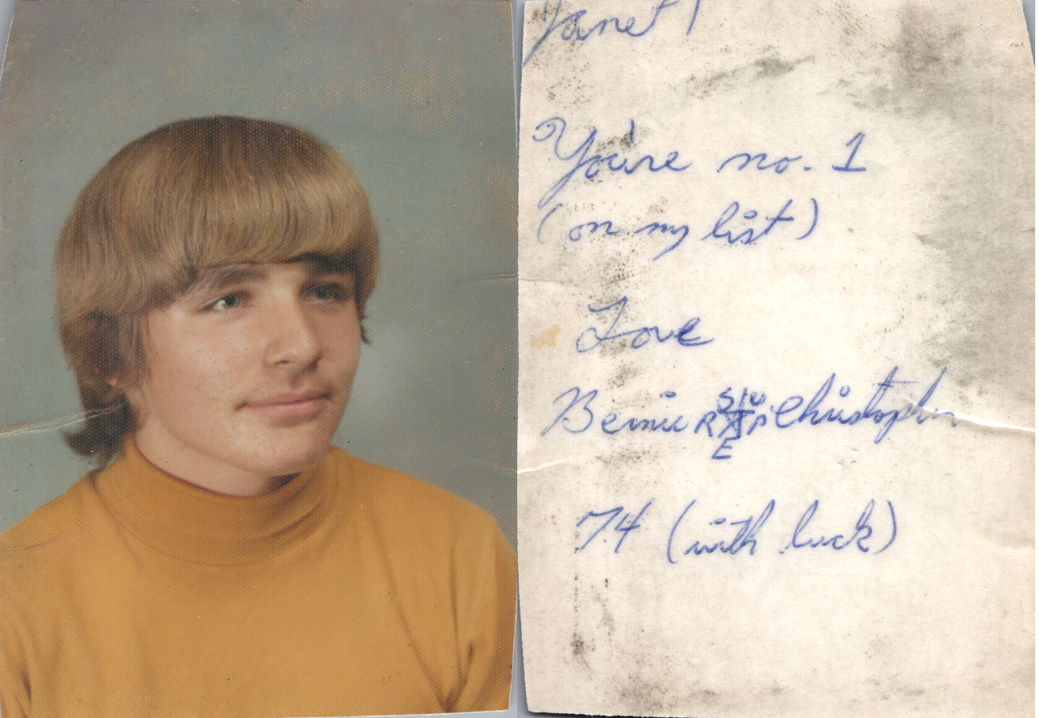 Janet!
You're no. 1
(on my list)
Love
Bernie Christopher
74 (with luck)